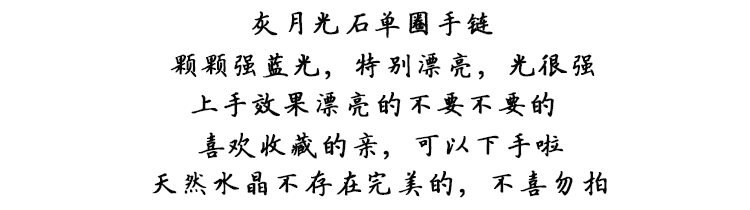 灰月光石单圈手链
颗颗强蓝光，特别漂亮，光很强
上手效果漂亮的不要不要的
喜欢收藏的亲，可以下手啦
天然水晶不存在完美的，不喜勿拍